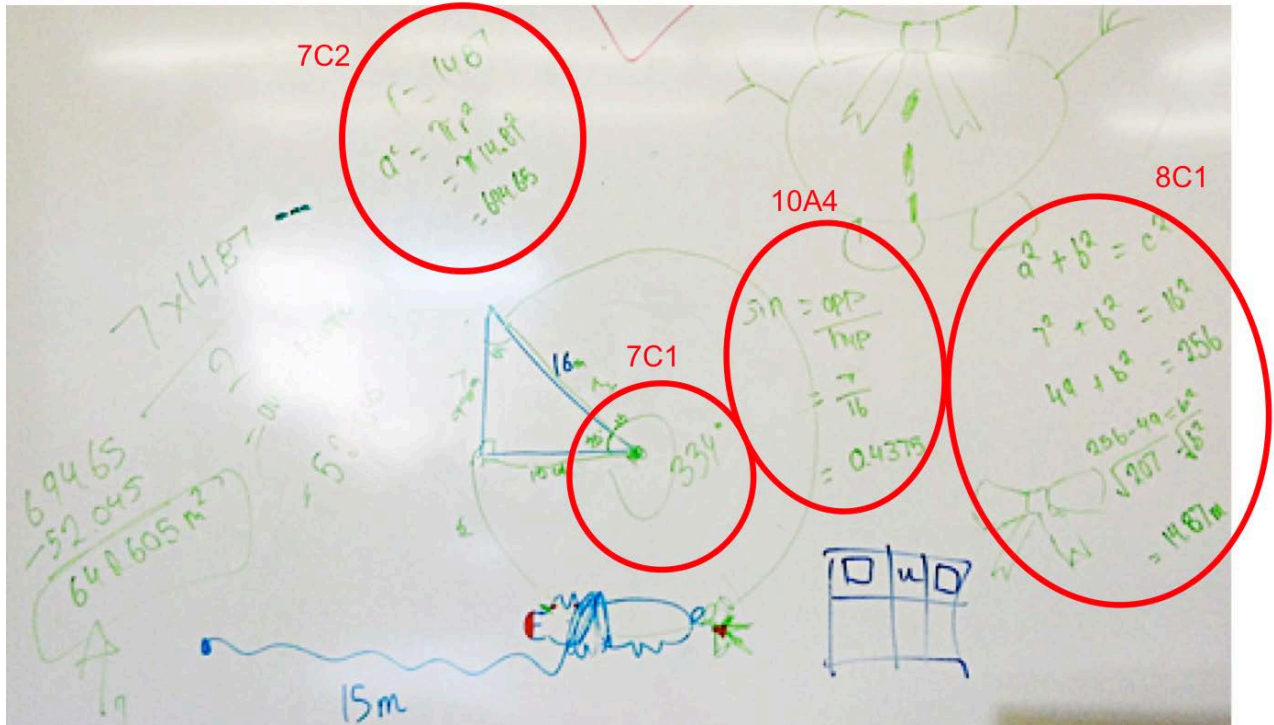 7C2
r = 14.87
a = πr²
= π14.87²
= 694.65
7 x 14.87
2
694.65
- 52.045
642.605 m²
16m
7C1
334°
10A4
sin = opp
hyp
= 7
16
= 0.4375
8C1
a² + b² = c²
7² + b² = 16²
49 + b² = 256
256 - 49 = b²
√207 √b²
= 14.87m
15m